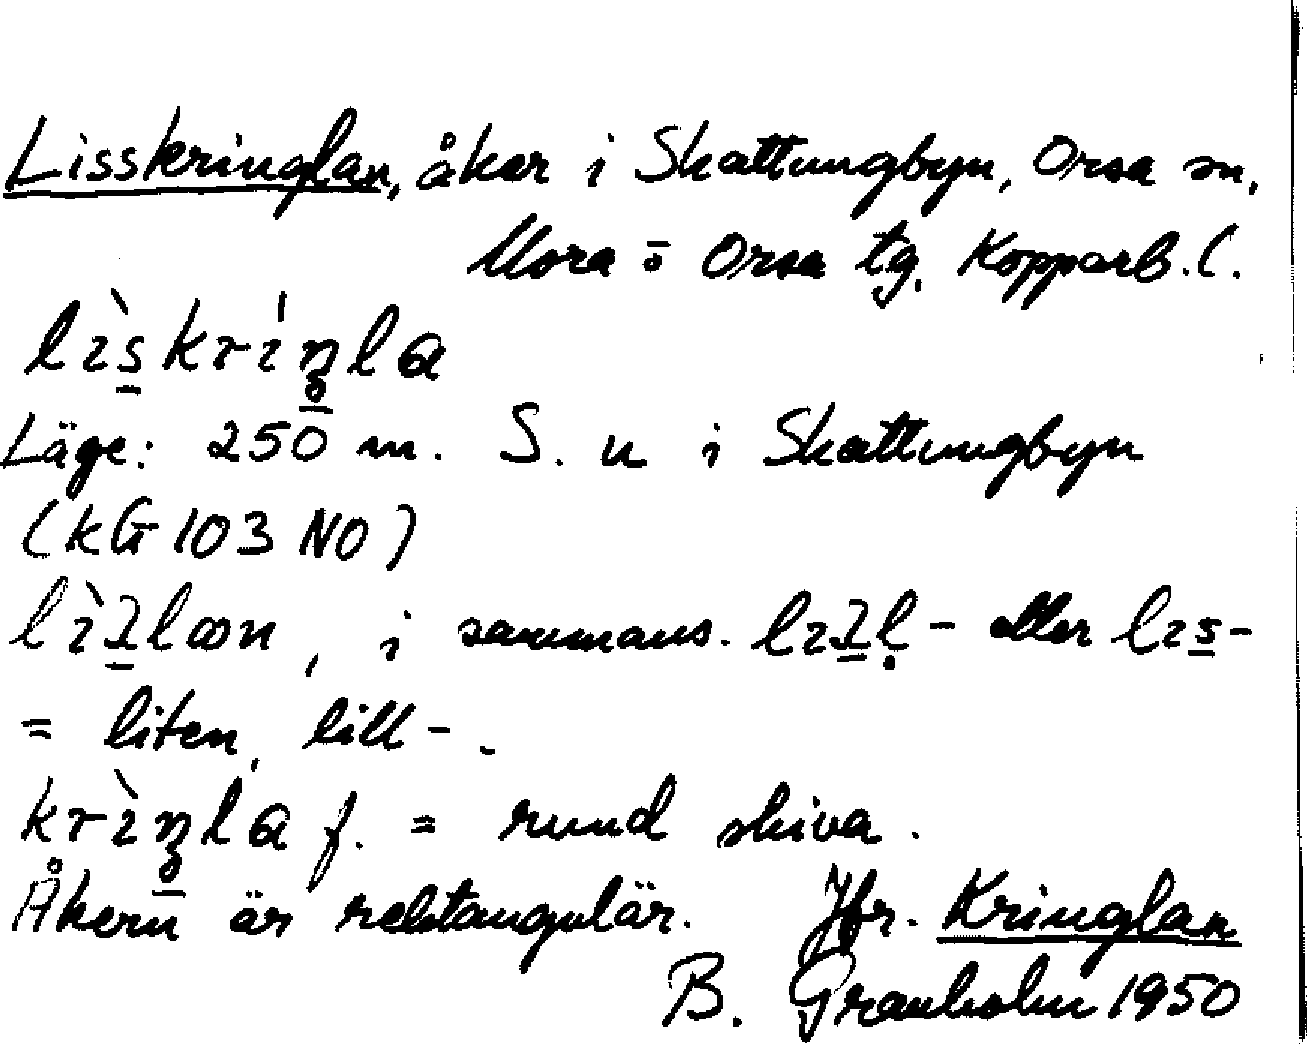 Lisskringlan, åker i Skattungbyn, Orsa sn,
Mora o Orsa tg, Kopparb. l.
lìs̱krı́ŋ̱la
Läge: 250 m. S. u i Skattungbyn
(KG 103 NO)
i sammans. eller lıs̱-
= liten, lill-.
krìŋ̱la f. = rund skiva.
Åkern är rektangulär. Jfr. Kringlan
B. Granholm 1950